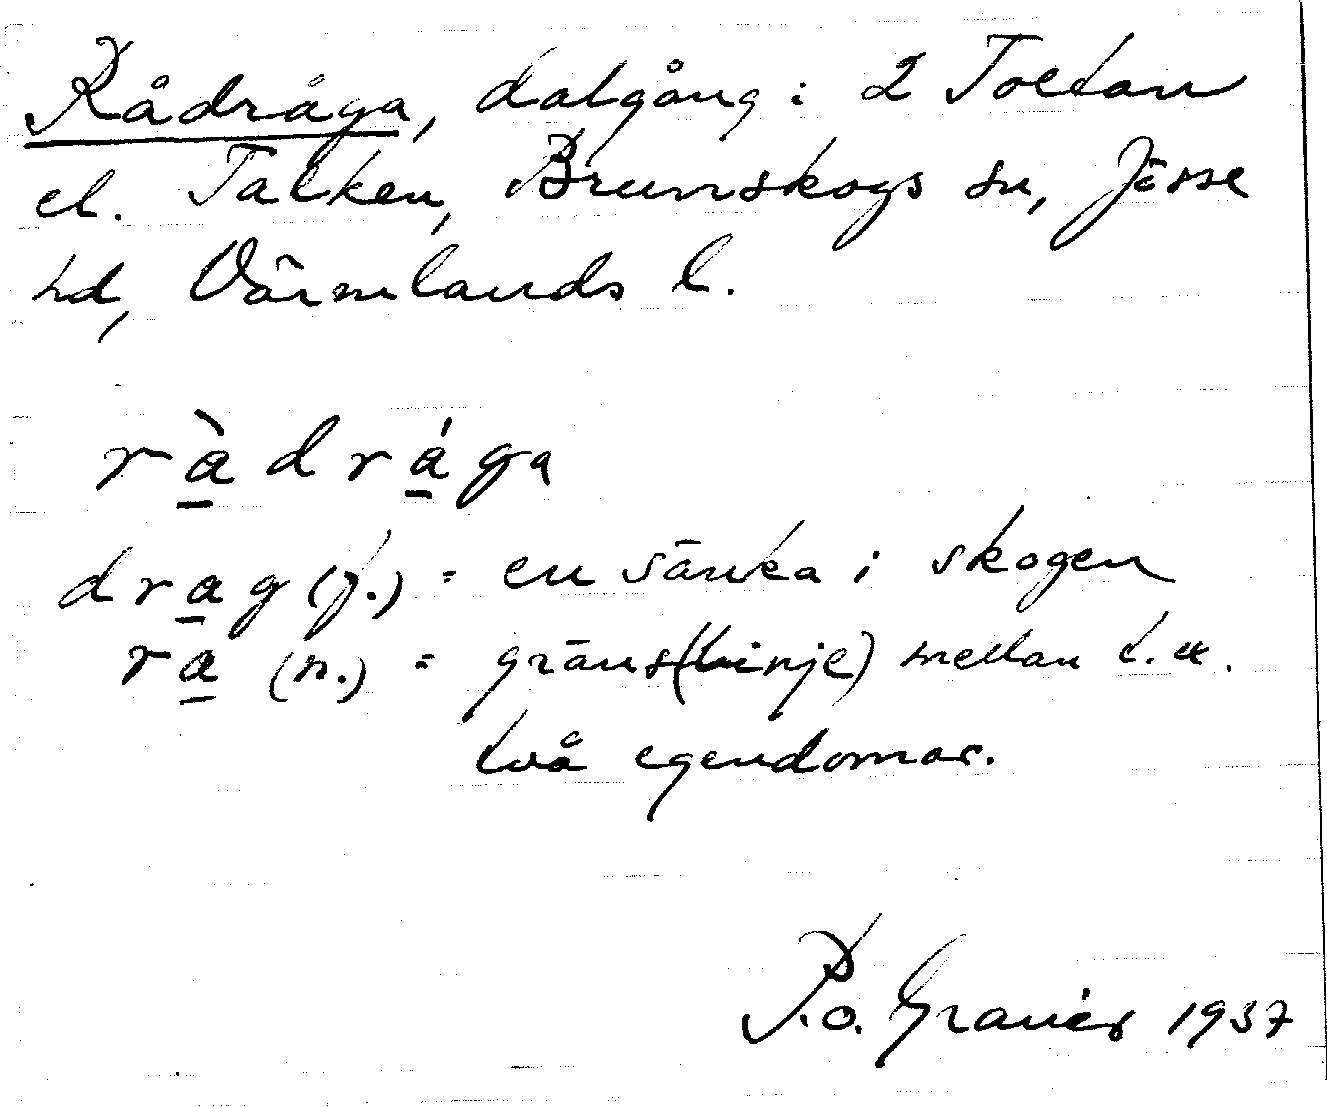 Rådråga, dalgång i 2 Toltan
el. Talken, Brunskogs sn, Jösse
hd, Värmlands l.
rà̱drá̱ga
dra̱g (f.) = en sänka i skogen
ra̱ (n.) = gräns(linje) mellan t.ex.
två egendomar.
P.o. Graner 1937